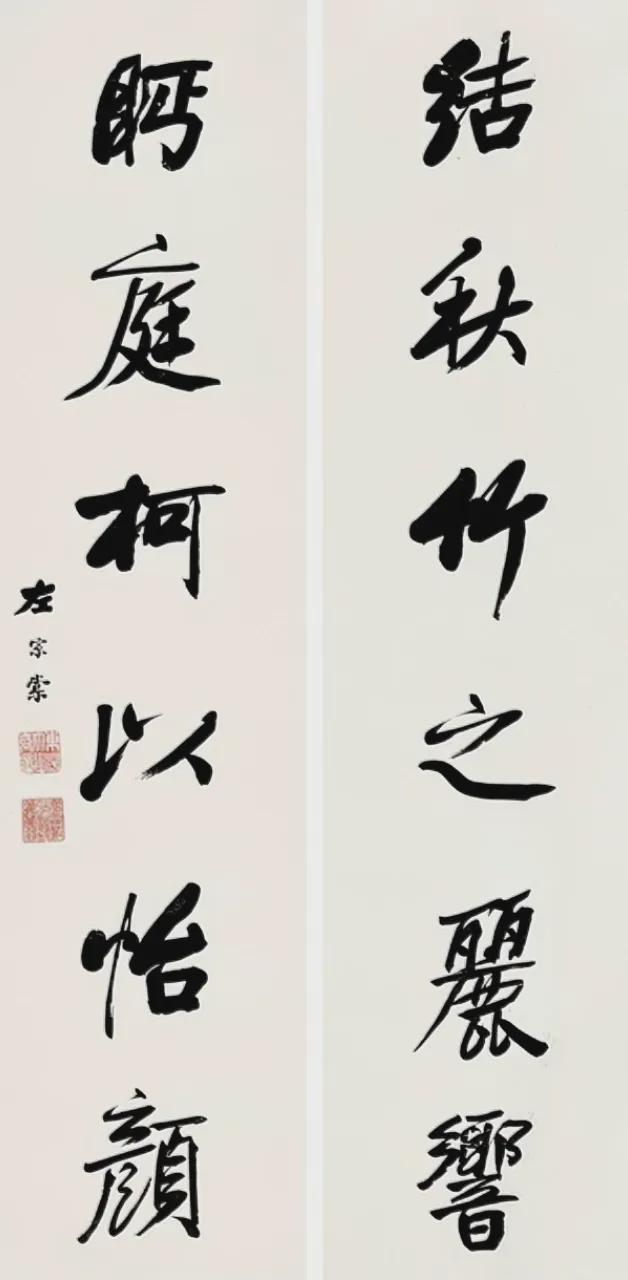 結秋竹之麗響
眄庭柯以怡顏
左宗棠